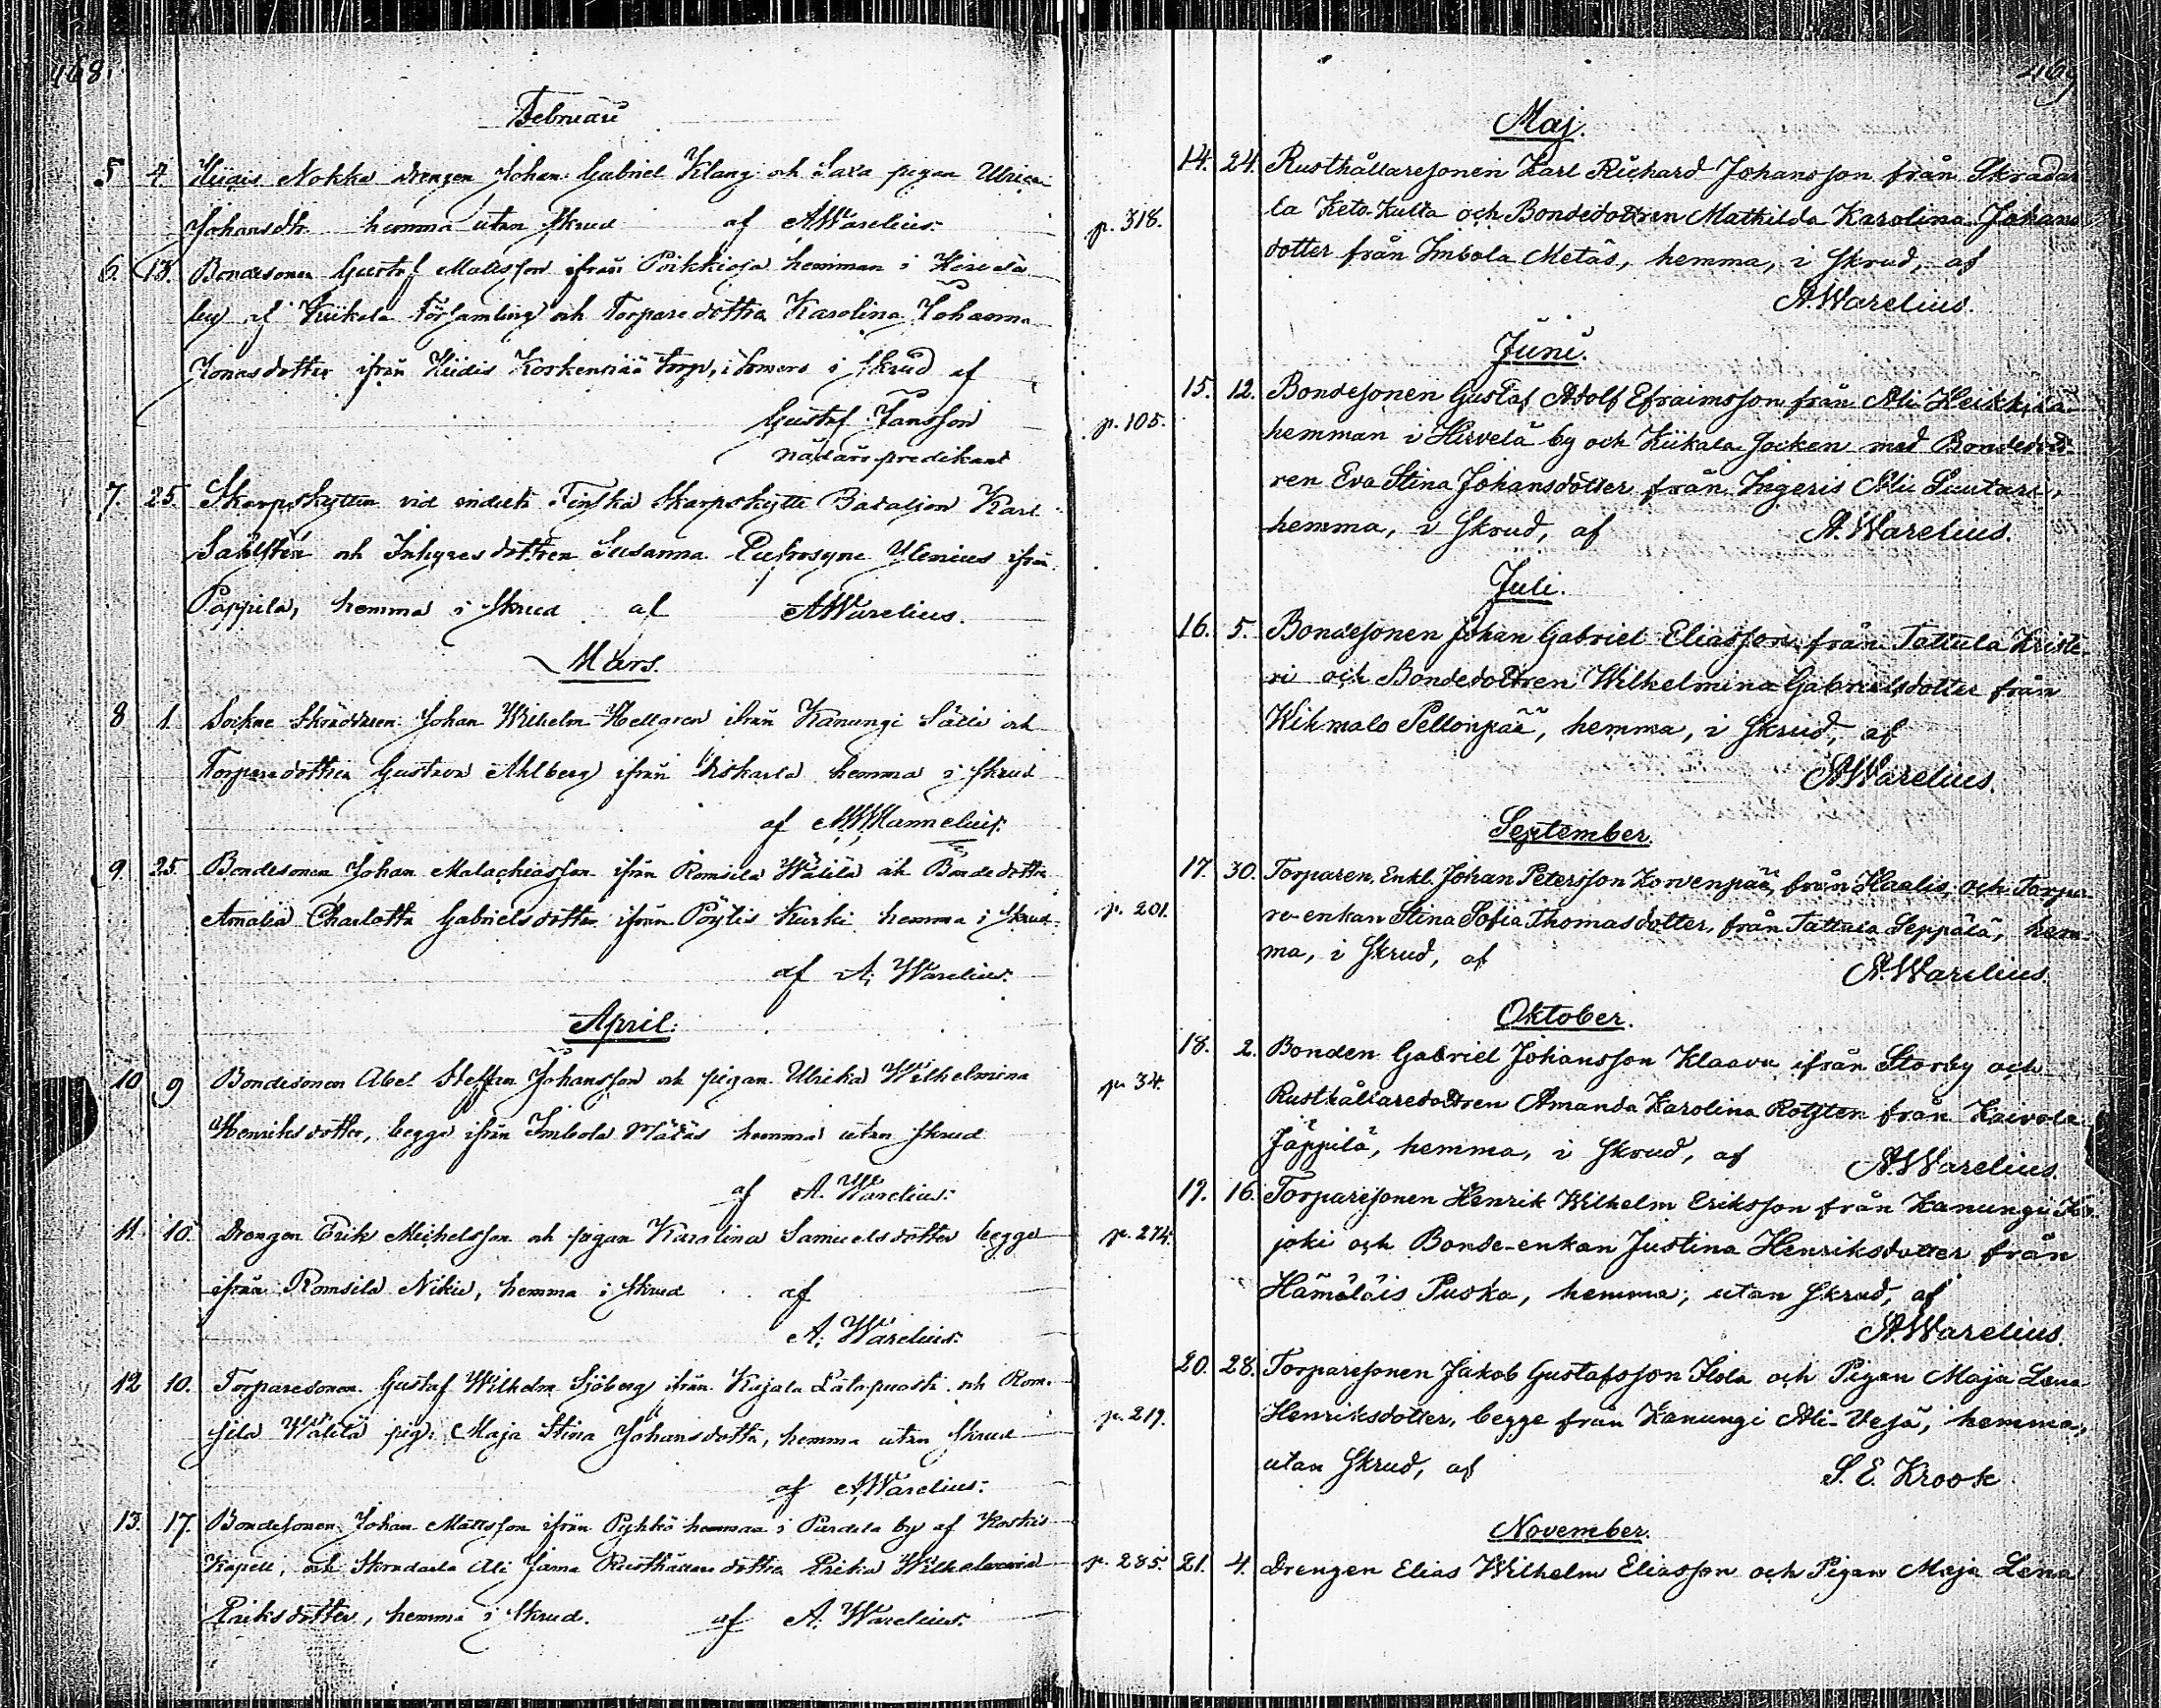 468.
Februari
5 4 Hiidis Nokka drengen Johan Gabriel Klang och Saxa pigan Ulrica
Johansdtr hemma utan Skrud af AWarelius.
6. 13. Bondesonen Gustaf Mattsson ifrån Poikkioja hemman i
by af Kiikala Församling och Torparedottren Karolina Johanna
Jonasdotter ifrån Hiidis Korkenniää torp, i Somero i Skrud af
Gustaf Jansson
nådårs predikant
7. 25. Skarpskytten vid indelta Finska Skarpskytte Bataljon Karl
Sahlsten och Inhyses dottren Susanna Eufrosyne Ylenius ifrån
Pappila, hemma i Skrud af AWarelius.
Mars.
8 1. Sockne Skräddaren Johan Wilhelm Hellgren ifrån Kanungi Sälli och
Torparedottren Gustava Ahlberg ifrån hemma i Skrud
af
9. 25. Bondesonen Johan Malachiasson ifrån Romsila Wälilä och Bondedottren
Amalia Charlotta Gabrielsdotter ifrån Pöytis Kurki hemma i Skrud
af A. Warelius.
April.
10 9 Bondesonen Abel Steffan Johansson och pigan Ulrika Wilhelmina
Henriksdotter, begge ifrån Imbola Mätäs hemma utan Skrud
af A. Warelius.
11. 10. Drengen Erik Michelsson och pigan Karolina Samuelsdotter begge
ifrån Romsila Niku, hemma i Skrud af
A. Warelius.
12 10. Torparesonen Gustaf Wilhelm Sjöberg ifrån Kajala och Rom-
sila Wälilä pig. Maja Stina Johansdotter, hemma utan Skrud
af AWarelius.
13. 17. Bondesonen Johan Mattsson ifrån Pyhkö hemman i Purdela by af Koskis
Kapell, och Skradarla Ali Jama Rusthållare dottren Erika Wilhelmina
Eriksdotter, hemma i Skrud. af A. Warelius.
469
Maj.
14. 24. Rusthållaresonen Karl Richard Johansson från Skradar-
p. 318. la Keto-Kulta och Bondedottren Mathilda Karolina Johans
dotter från Imbola Metäs, hemma, i Skrud, af
A. Warelius.
Juni.
15. 12. Bondesonen Gustaf Adolf Efraimsson från Ali Heikkilä
p. 105. hemman i Hirvelä by och Kiikala Socken med Bondedott-
ren Eva Stina Johansdotter från Ingeris Ali Suutari,
hemma, i Skrud, af A. Warelius.
Juli.
16. 5. Bondesonen Johan Gabriel Eliasson från Tattula Kriste-
ri och Bondedottren Wilhelmina Gabrielsdotter från
Wihmalo Pellonpää, hemma, i Skrud, af
A. Warelius.
September.
17. 30. Torparen, Enkl. Johan Petersson Korvenpää, från Haalis och Torpa-
p. 201. re-enkan Stina Sofia Thomasdotter, från Tattula Seppälä, hem-
ma, i Skrud, af A. Warelius.
Oktober.
18. 2. Bonden Gabriel Johansson Klaavu ifrån Storby och
p. 34. Rusthållaredottren Amanda Karolina Rotsten från Kaivola
Jäppilä, hemma, i Skrud, af A. Warelius.
19. 16. Torparesonen Henrik Wilhelm Eriksson från Kanungi
p. 274. joki och Bonde-enkan Justina Henriksdotter från
Hämäläis Puska, hemma, utan Skrud, af
A. Warelius.
20. 28. Torparesonen Jakob Gustafsson Ilola och Pigan Maja Lena
p. 219. Henriksdotter, begge från Kanungi Ali-Vesa, hemma,
utan Skrud, af S. E. Krook
November.
p. 285. 21. 4. Drengen Elias Wilhelm Eliasson och Pigan Maja Lena